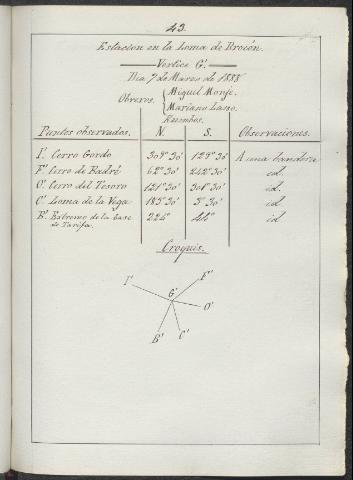 43.
Estacion en la Loma de Brocón.
Vertice G'.
Dia 7 de Marzo de 1888
Obreros. Miguel Monje.
Mariano Laso.
Rumbos.
Puntos observados. N. S. Observaciones.
I'. Cerro Gordo 309° 30' 129° 30' A una bandera
F'. Cerro de Badré 62° 30' 242° 30' id.
O'. Cerro del Tesoro 121° 30' 301° 30' id.
C'. Loma de la Vega 185° 30' 5° 30' id.
B'. Extremo de la base 224° 44° id
de Tarifa.
Croquis.
I' F'
G'
O'
B' C'